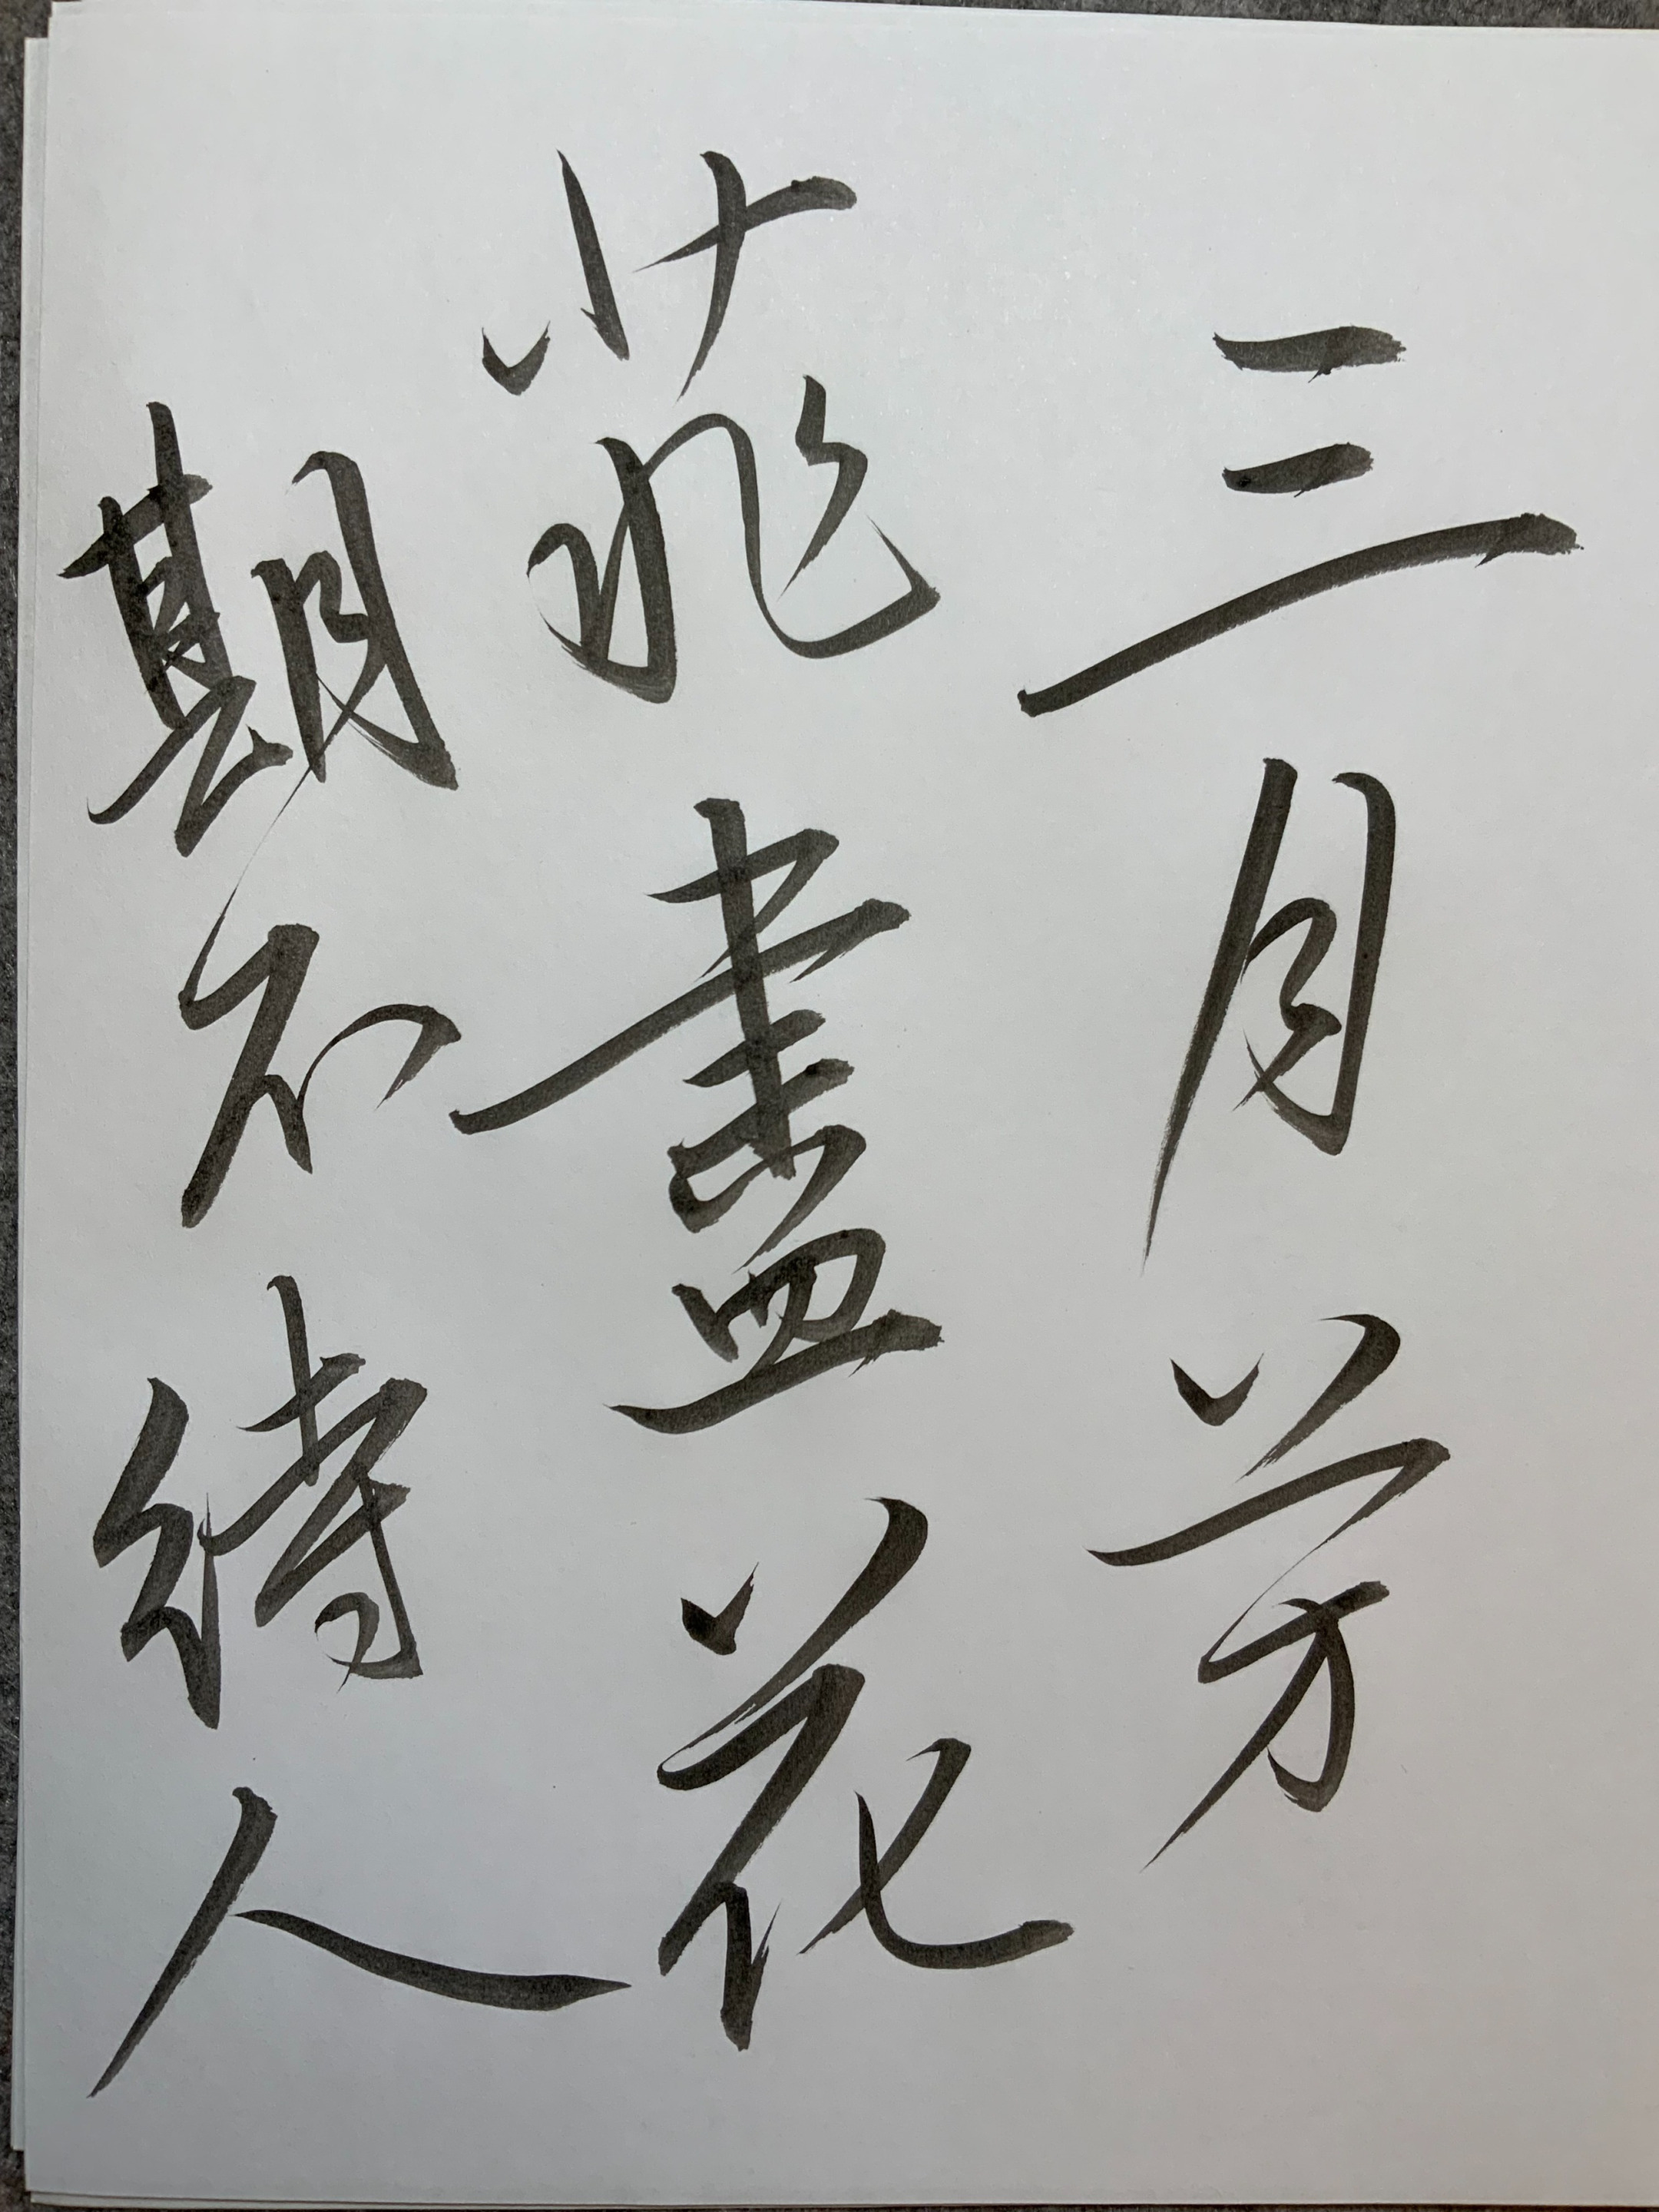 三月芳
菲盡花
期不待人